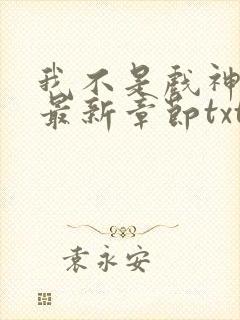 我不是戏神
最新章节txt
袁永安